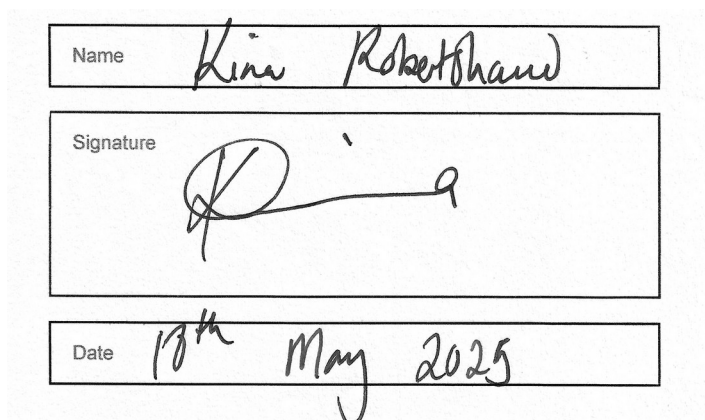 Name Kina Robertshaw
Signature Kina
Date 13th May 2025